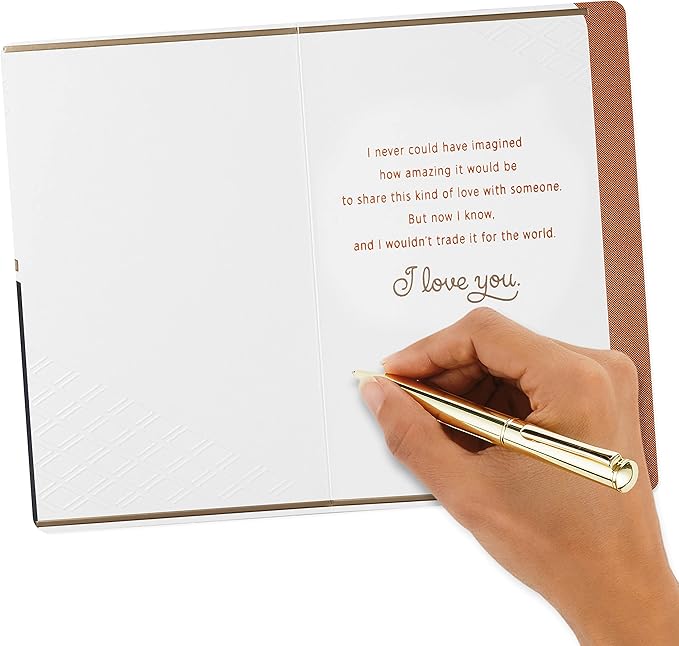 I never could have imagined
how amazing it would be
to share this kind of love with someone.
But now I know,
and I wouldn't trade it for the world.
I love you.